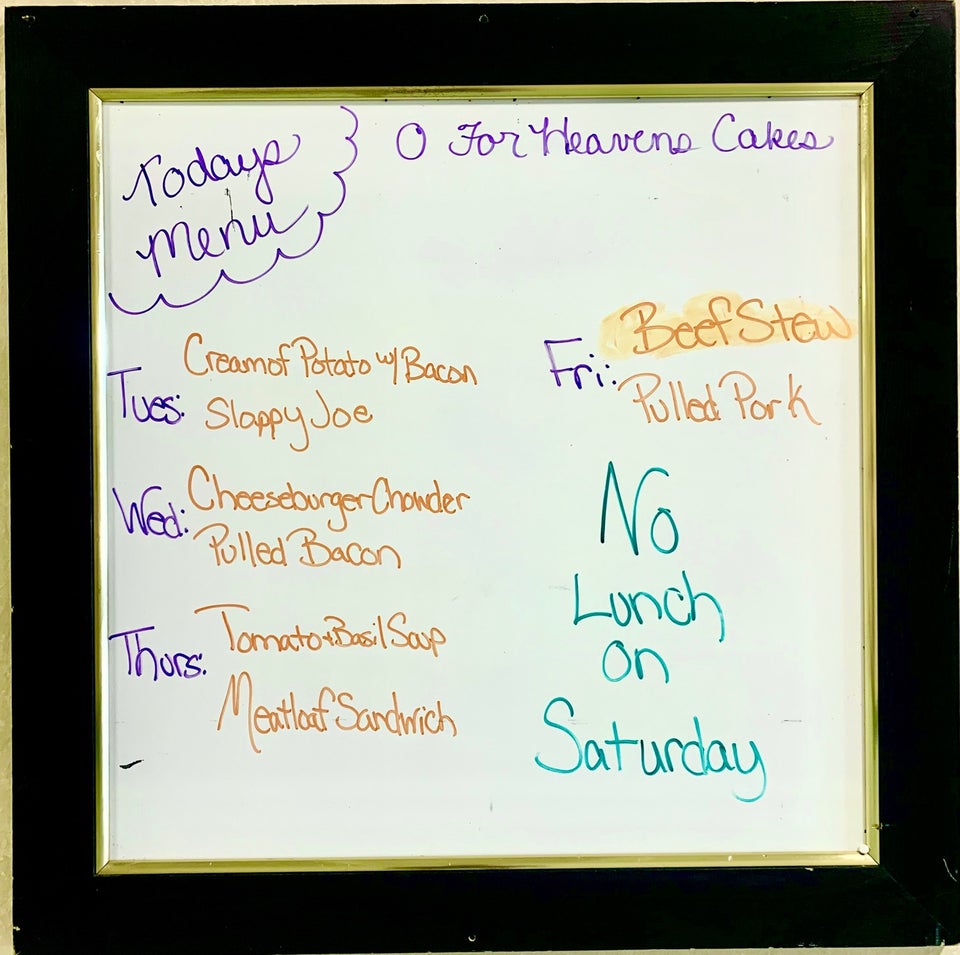 Todays
Menu
O For Heavens Cakes
Tues:
Cream of Potato w/ Bacon
Slappy Joe
Wed:
Cheeseburger Chowder
Pulled Bacon
Thurs:
Tomato + Basil Soup
Meatloaf Sandwich
Fri:
Beef Stew
Pulled Pork
No
Lunch
on
Saturday